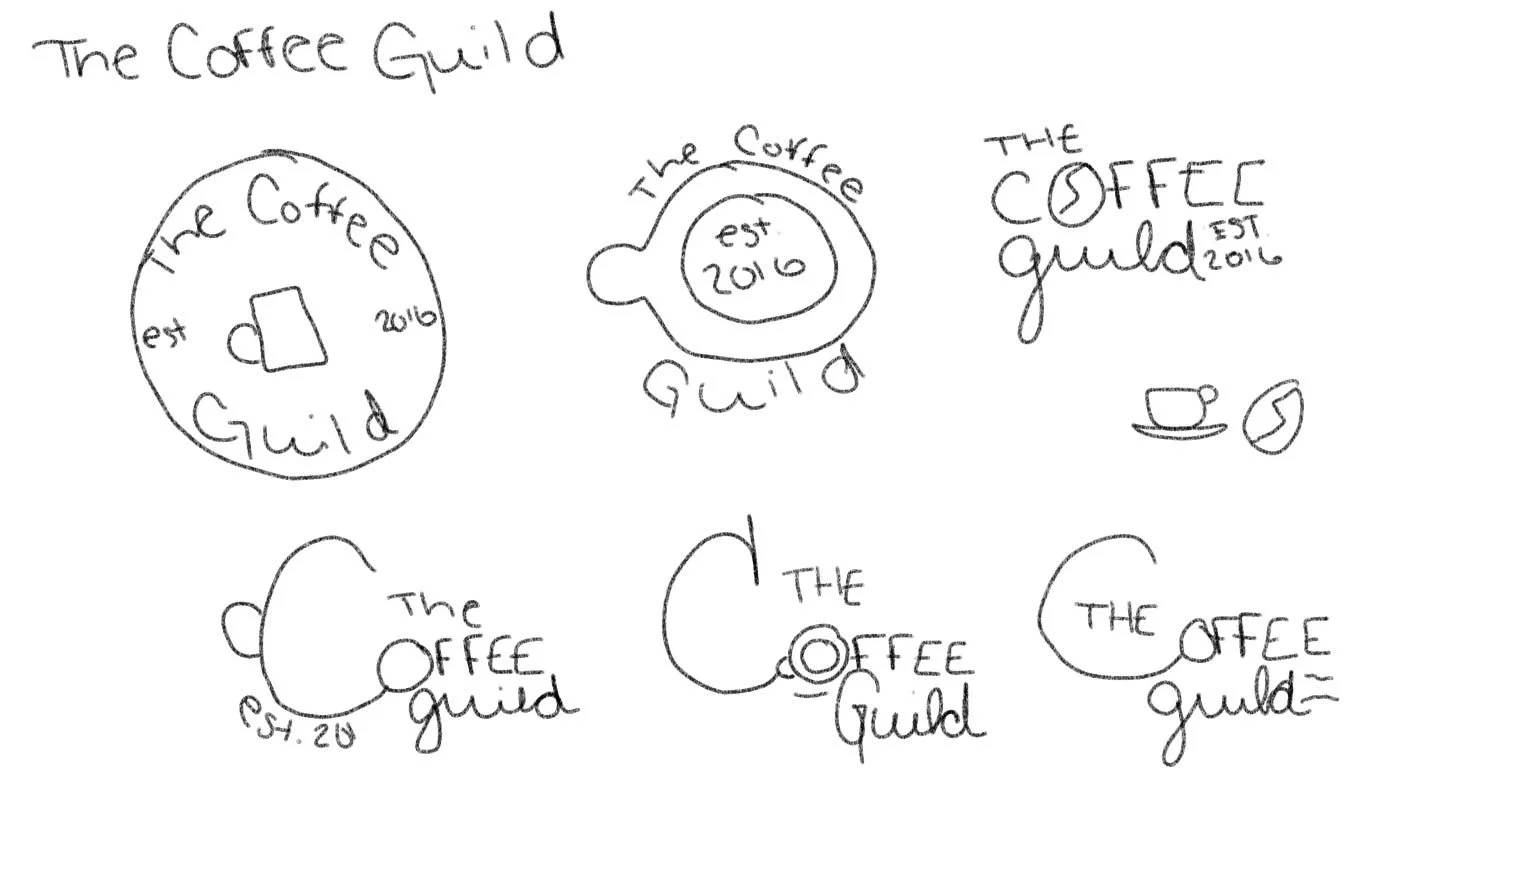 The Coffee Guild
The Coffee
est
2016
Guild
The Coffee
est.
2016
Guild
THE
COFFEE
guild
EST.
2016
The
COFFEE
guild
est. 20
THE
COFFEE
Guild
THE
COFFEE
guild